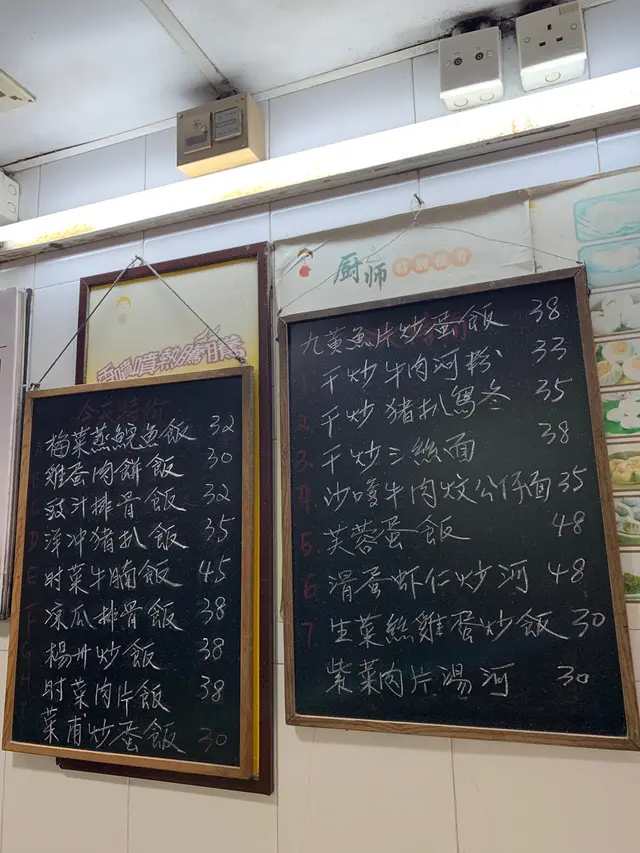 今天特价
梅菜蒸鯇魚飯 32
雞蛋肉餅飯 30
豉汁排骨飯 32
洋冲猪扒飯 35
D
时菜牛腩飯 45
E
凉瓜排骨飯 38
F
楊州炒飯 38
G
时菜肉片飯 38
H
菜甫炒蛋飯 30
I
厨师
九黄魚片炒蛋飯 38
1. 干炒牛肉河粉 33
2. 干炒猪扒烏冬 35
3. 干炒三絲面 38
4. 沙嗲牛肉炆公仔面 35
5. 芙蓉蛋飯 48
6 滑蛋虾仁炒河 48
7 生菜絲雞蛋炒飯 30
紫菜肉片湯河 30